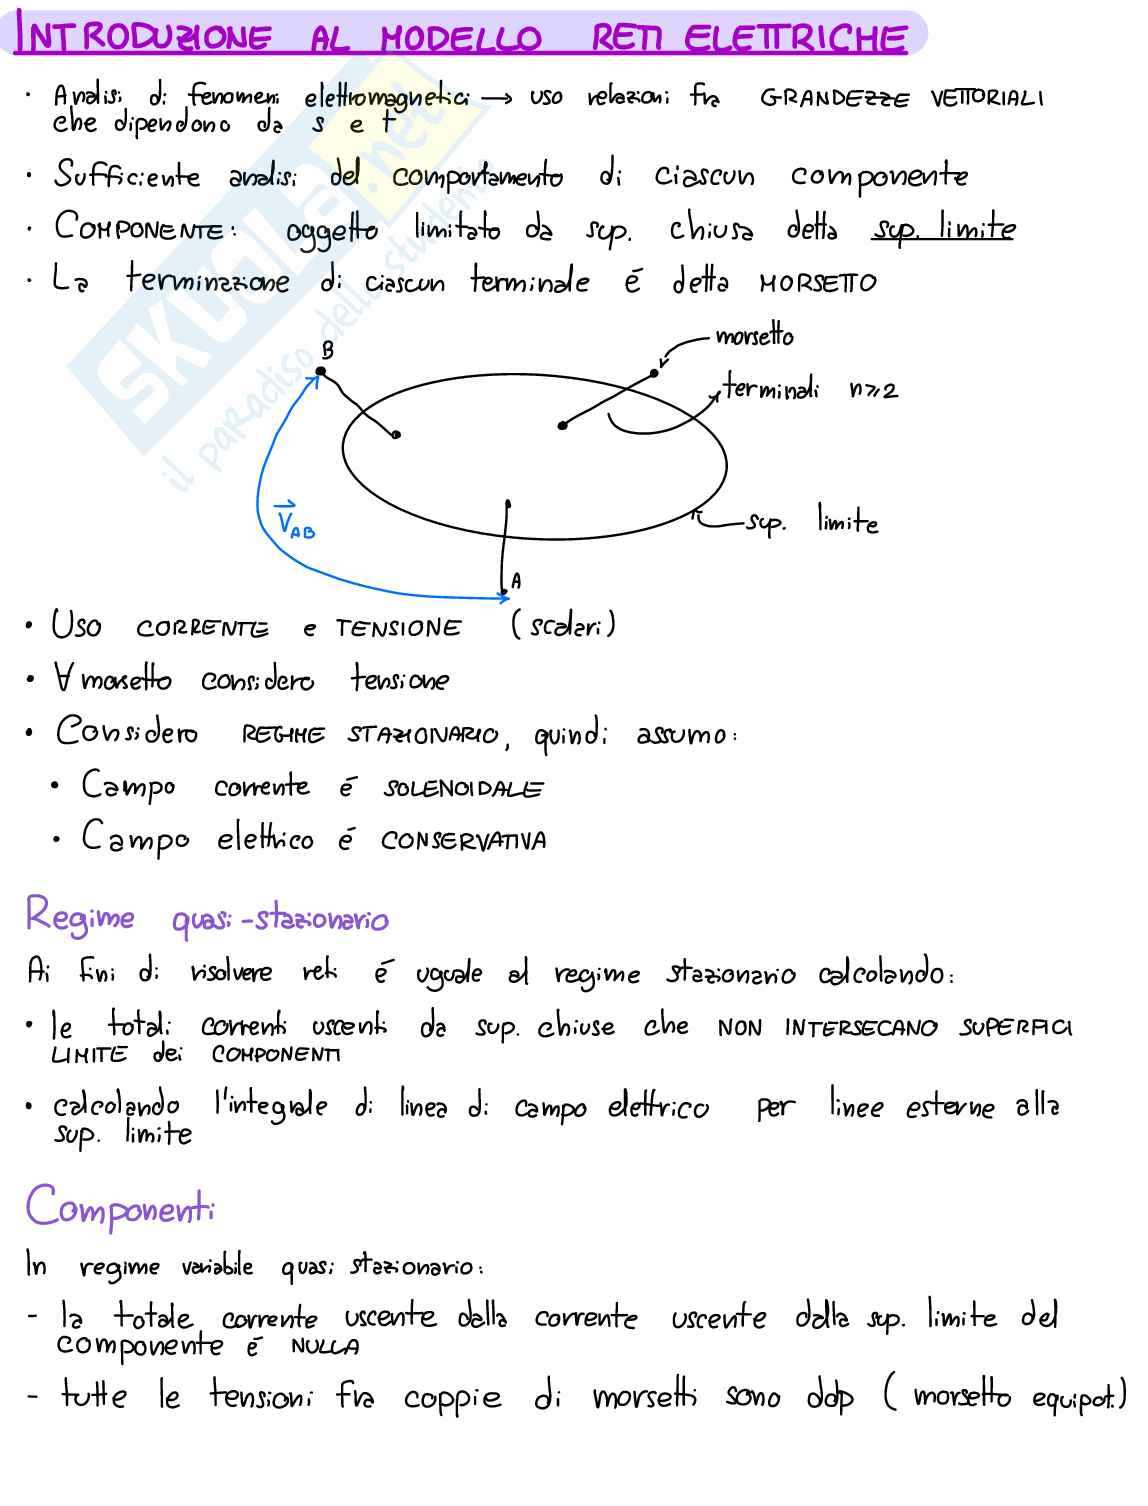 INTRODUZIONE AL MODELLO RETI ELETTRICHE
· Analisi di fenomeni elettromagnetici → uso relazioni fra GRANDEZZE VETTORIALI
che dipendono da s e t
· Sufficiente analisi del comportamento di ciascun componente
· COMPONENTE: oggetto limitato da sup. chiusa detta sup. limite
· La terminazione di ciascun terminale é detta MORSETTO
SKUOLA.net
il paradiso dello studente
morsetto
B
terminali n≥2
V⃗AB
sup. limite
A
• Uso CORRENTE e TENSIONE (scalari)
• ∀ morsetto considero tensione
• Considero REGIME STAZIONARIO, quindi assumo:
• Campo corrente é SOLENOIDALE
• Campo elettrico é CONSERVATIVA
Regime quasi-stazionario
Ai fini di risolvere reti é uguale al regime stazionario calcolando:
• le totali correnti uscenti da sup. chiuse che NON INTERSECANO SUPERFICI
LIMITE dei COMPONENTI
• calcolando l'integrale di linea di campo elettrico per linee esterne alla
sup. limite
Componenti
In regime variabile quasi stazionario:
- la totale corrente uscente dalla corrente uscente dalla sup. limite del
componente é NULLA
- tutte le tensioni fra coppie di morsetti sono ddp (morsetto equipot.)